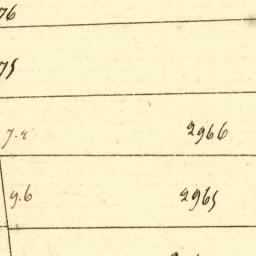 76
75
7.2 2966
9.6 2965